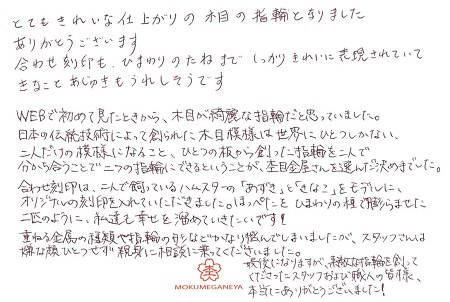 とてもきれいな仕上がりの木目の指輪となりました
ありがとうございます
合わせ刻印も、ひまわりのたねまで しっかりきれいに表現されていて
きなことあじゅきもうれしそうです
WEBで初めて見たときから、木目が綺麗な指輪だと思っていました。
日本の伝統技術によって創られた木目模様は世界にひとつしかない、
二人だけの模様になること、ひとつの板から創った指輪を二人で
分かち合うことで二つの指輪にできるということが、杢目金屋さんを選んだ決めてでした。
合わせ刻印は、二人で飼っているハムスターの「あずき」と「きなこ」をモデルに、
オリジナルの刻印を入れていただきました。ほっぺたを ひまわりの種で膨らませた
二匹のように、私達も幸せを溜めていきたいです!
重ねる金属の種類や指輪の形などかなり悩んでしまいましたが、スタッフさんは
嫌な顔ひとつせず 親身に相談に乗ってくださいました。
最後になりますが、素敵な指輪を創って
くださったスタッフおよび職人の皆様、
本当にありがとうございました!
MOKUMEGANEYA